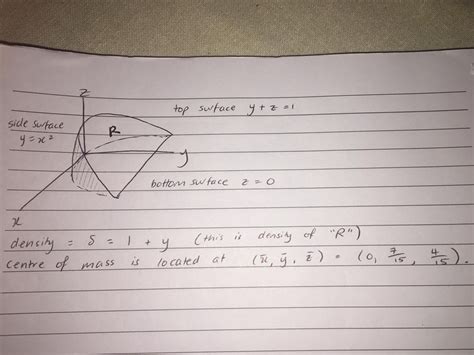 z
top surface y + z = 1
side surface
y = x²
R
y
bottom surface z = 0
x
density = δ = 1 + y (this is density of "R")
centre of mass is located at (x̄, ȳ, z̄) = (0, 7/15, 4/15).